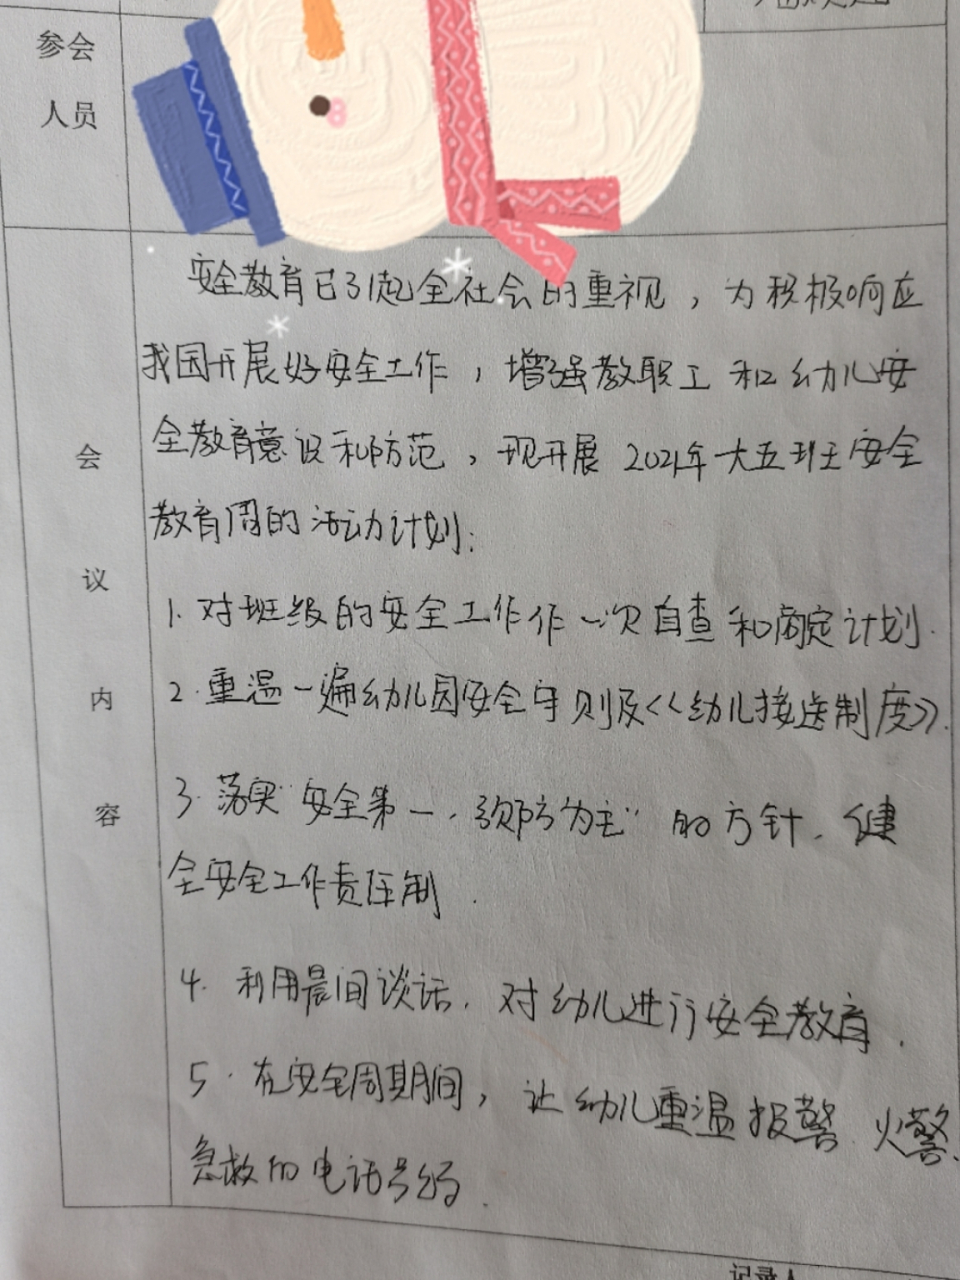 参会
人员
安全教育已引起全社会的重视，为积极响应
我园开展好安全工作，增强教职工和幼儿安
全教育意识和防范，现开展2021年大五班安全
教育周的活动计划：
会
议
内
容
1.对班级的安全工作作一次自查和商定计划.
2.重温一遍幼儿园安全守则及《幼儿接送制度》.
3.落实"安全第一，预防为主"的方针，健
全安全工作责任制.
4.利用晨间谈话，对幼儿进行安全教育.
5.在安全周期间，让幼儿重温报警、火警、
急救的电话号码.
记录人